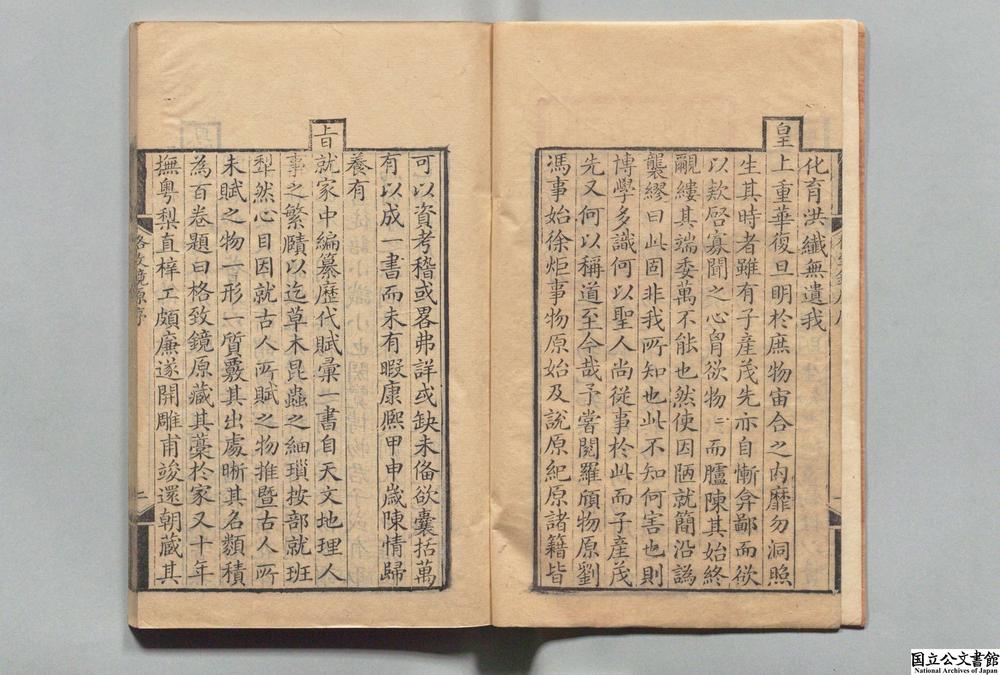 化育洪纖無遺我
皇
上重華復旦明於庶物宙合之內靡勿洞照
生其時者雖有子產茂先亦自慚弇鄙而欲
以欵啓寡聞之心胷欲物物而臚陳其始終
覼縷其端委萬不能也然使因陋就簡沿譌
襲繆曰此固非我所知也此不知何害也則
博學多識何以聖人尚從事於此而子產茂
先又何以稱道至今哉予嘗閱羅頎物原劉
馮事始徐炬事物原始及說原紀原諸籍皆
可以資考稽或畧弗詳或缺未俻欲囊括萬
有以成一書而未有暇康熈甲申歲陳情歸
養有
旨
就家中編纂歷代賦彙一書自天文地理人
事之繁賾以迄草木昆蟲之細瑣按部就班
犁然心目因就古人所賦之物推暨古人所
未賦之物一形一質覈其出處晰其名類積
為百卷題曰格致鏡原藏其藁於家又十年
撫粵梨直梓工頗廉遂開雕甫竣還朝藏其
格致鏡原序
二
国立公文書館
National Archives of Japan